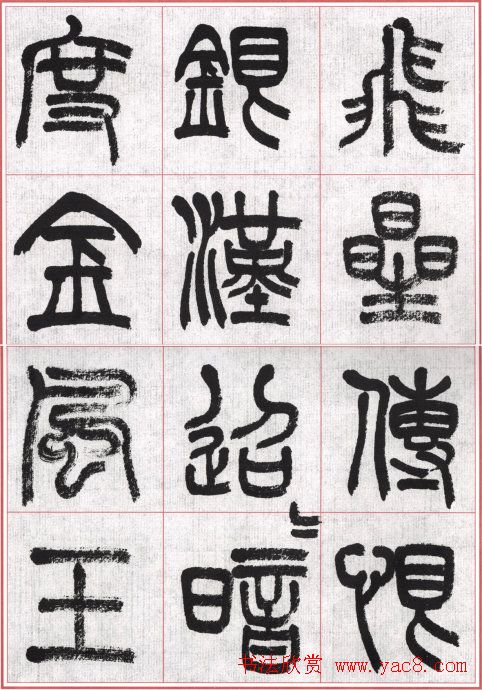 飛曐傳恨
銀漢迢〻暗
度金風玉
书法欣赏 www.yac8.com